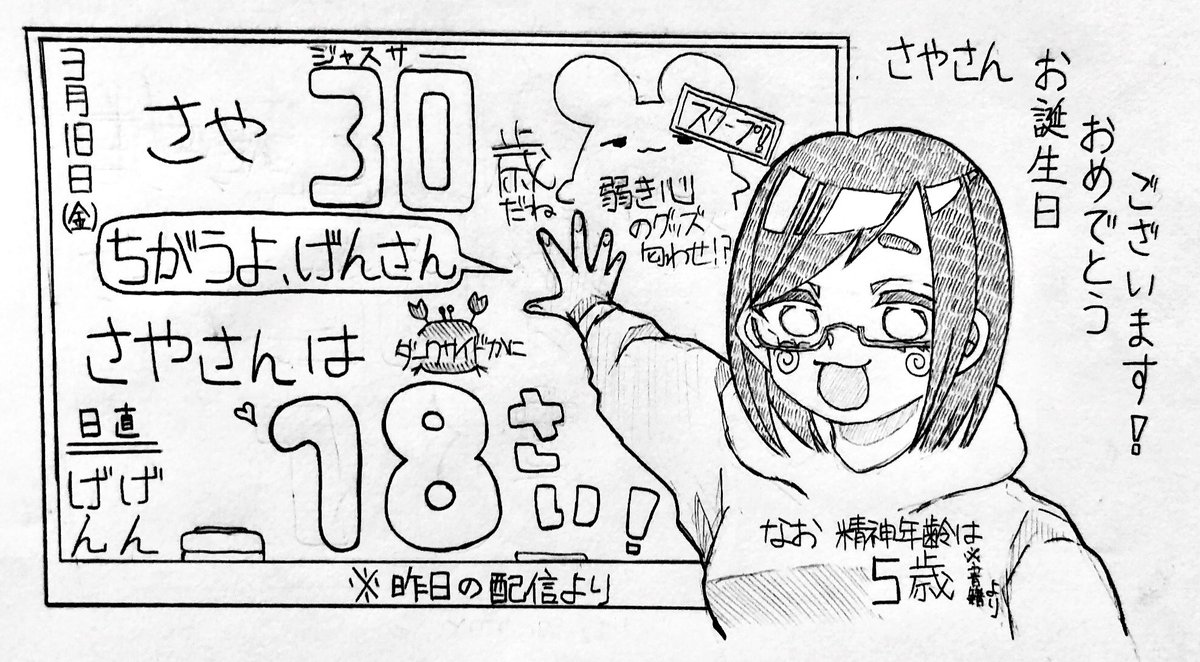 さやさん
お誕生日
おめでとう
ございます!
3月18日(金)
ジャスサー
さや30歳だね
スクープ!
弱き心
のグッズ
匂わせ!?
ちがうよ、げんさん
さやさんは
ダークサイドかに
18さい!
日直
げんげん
なお 精神年齢は
5歳
※書籍より
※昨日の配信より